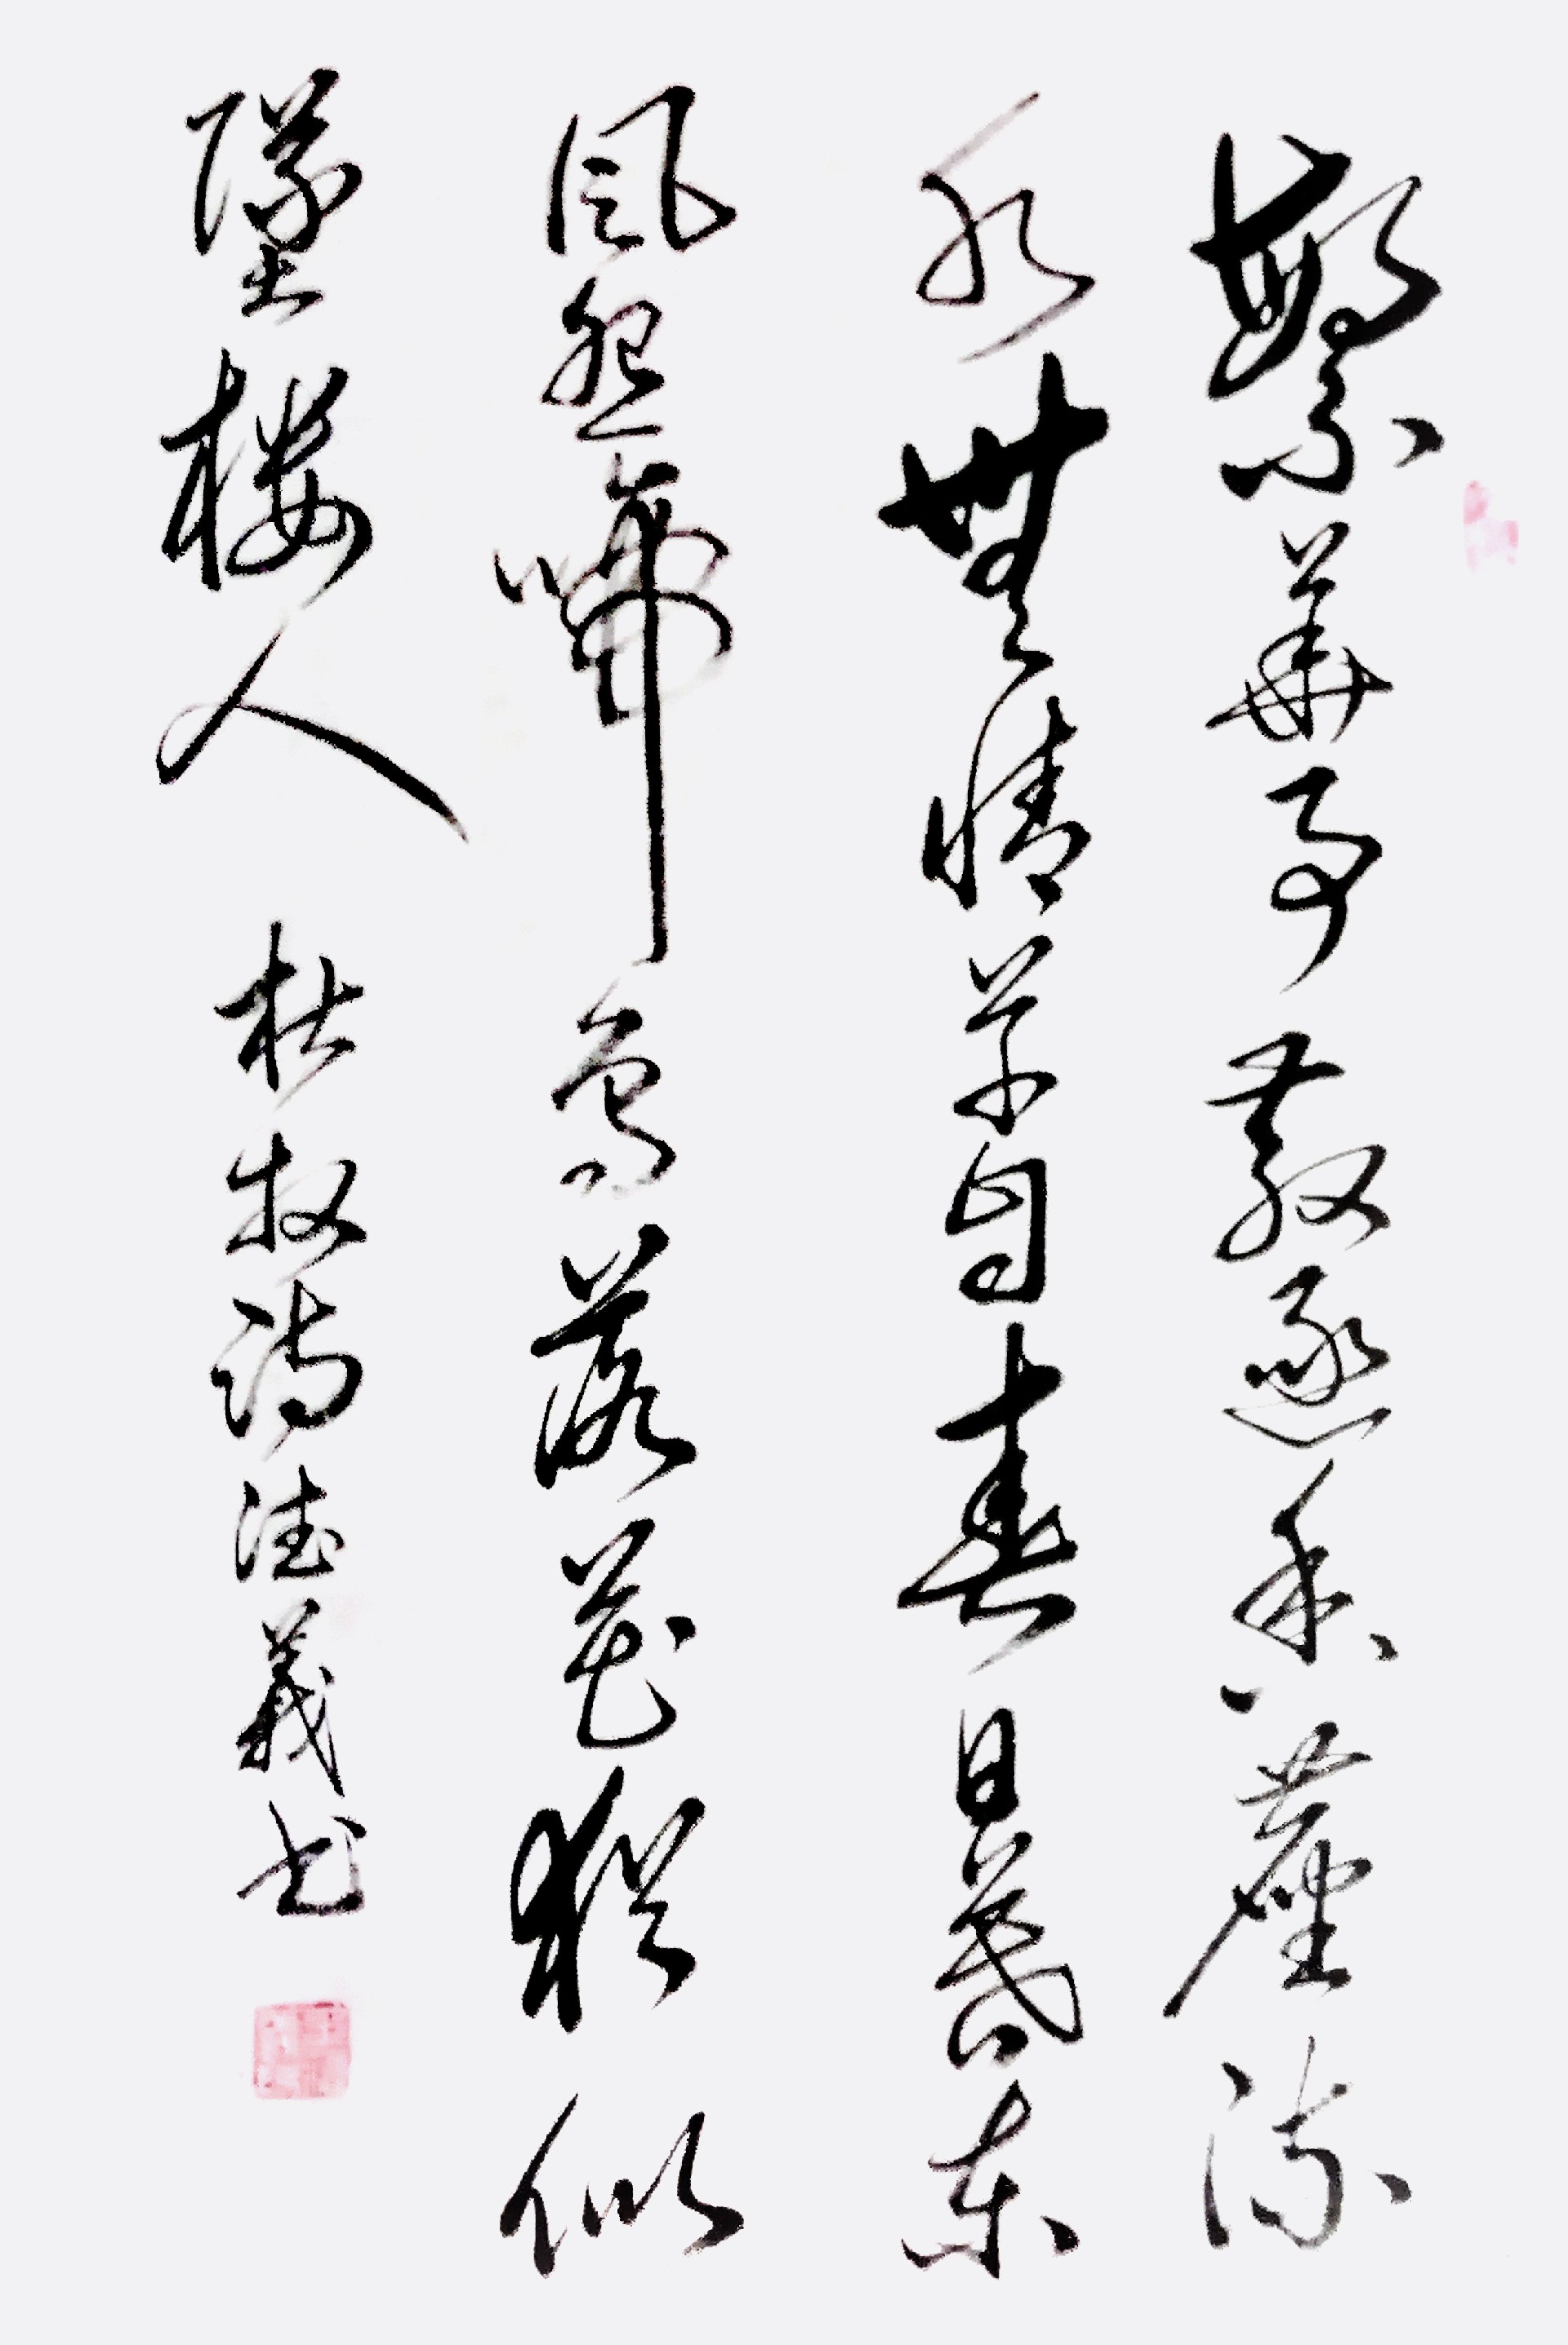 繁華事散逐香塵流
水無情草自春日暮東
風怨啼鳥落花猶似
墜樓人 杜牧詩 德義书